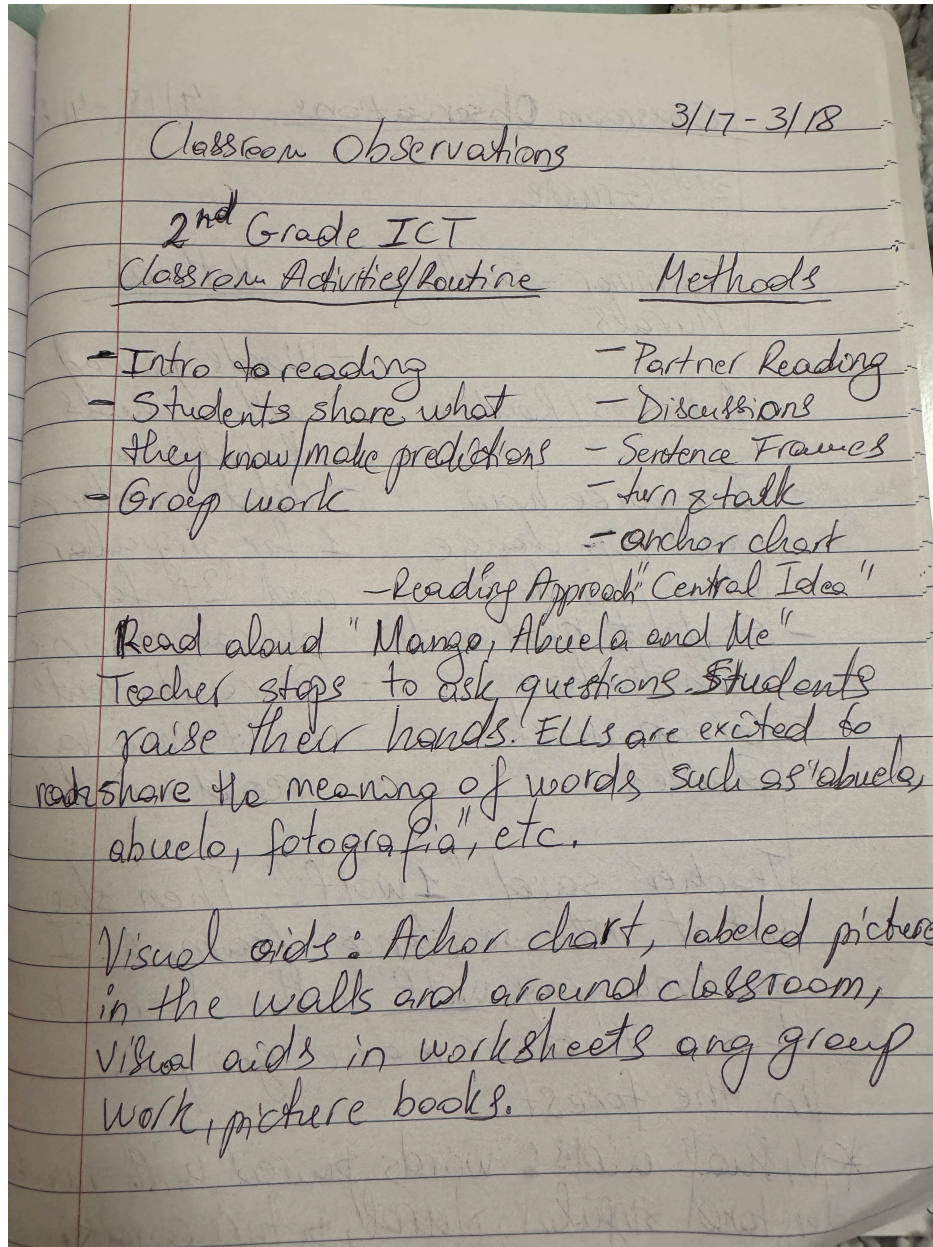 3/17 - 3/18
Classroom Observations
2nd Grade ICT
Classroom Activities/Routine Methods
- Intro to reading - Partner Reading
- Students share what - Discussions
they know/make predictions - Sentence Frames
- Group work - turn & talk
- anchor chart
- Reading Approach "Central Idea"
Read aloud "Mango, Abuela and Me"
Teacher stops to ask questions. Students
raise their hands. ELLs are excited to
share the meaning of words such as "abuela,
abuelo, fotografia", etc.
Visual aids: Achor chart, labeled picture
in the walls and around classroom,
visual aids in worksheets ang group
work, picture books.